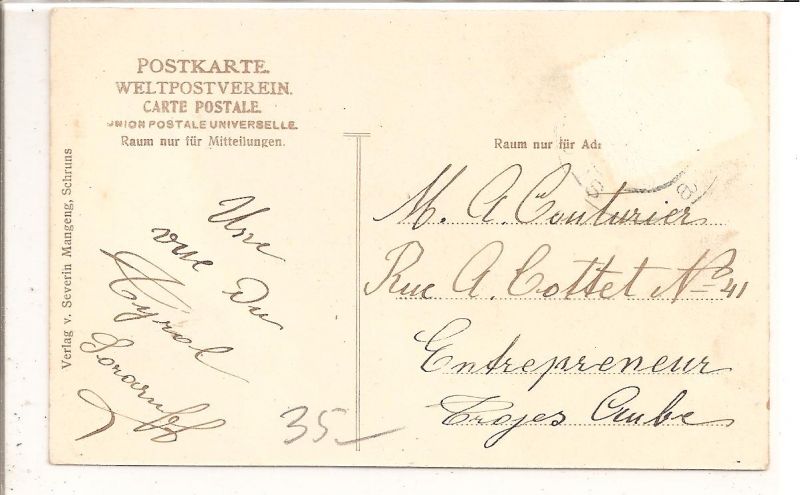 POSTKARTE.
WELTPOSTVEREIN.
CARTE POSTALE.
UNION POSTALE UNIVERSELLE.
Raum nur für Mitteilungen.
Verlag v. Severin Mangeng, Schruns
Une
vue du
Tyrol
35
Raum nur für Adr
M. A. Couturier
Rue A. Cottet No 41
Entrepreneur
Troyes Aube